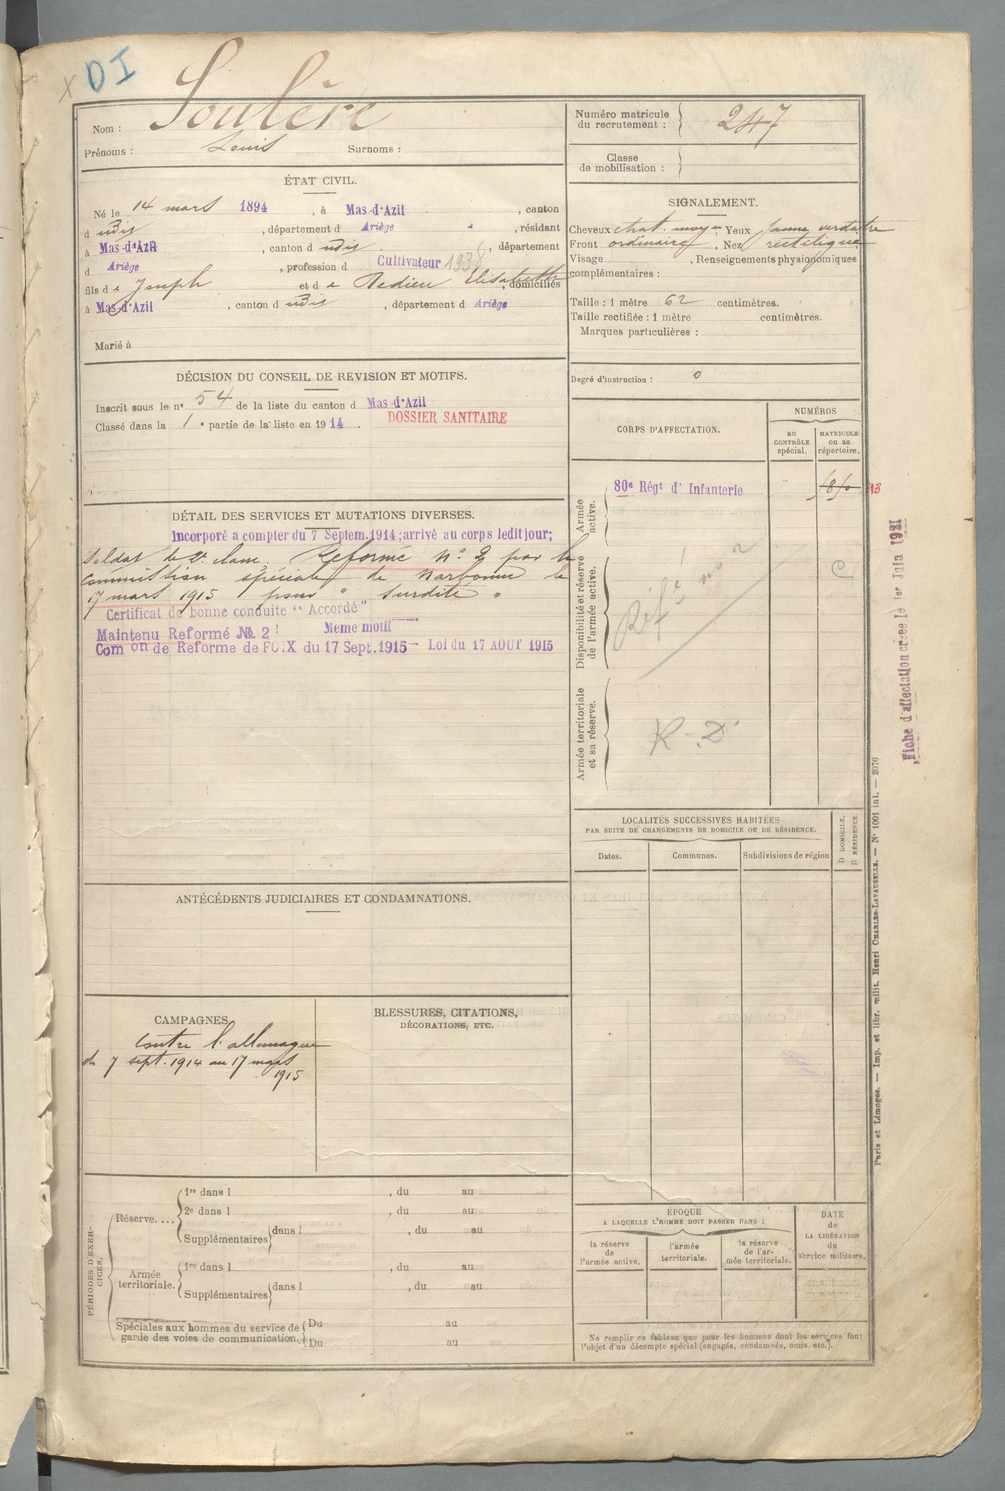 x DI
Nom : Soulère
Prénoms : Louis Surnoms :
ÉTAT CIVIL.
Né le 14 mars 1894, à Mas-d'Azil, canton
d udis, département d Ariège, résidant
à Mas-d'Azil, canton d udis, département
d Ariège, profession d Cultivateur
fils de Joseph et de Elisabeth, domiciliés
à Mas-d'Azil, canton d udis, département d Ariège
Marié à
DÉCISION DU CONSEIL DE REVISION ET MOTIFS.
Inscrit sous le n° 54 de la liste du canton d Mas-d'Azil
Classé dans la 1e partie de la liste en 1914.
DOSSIER SANITAIRE
DÉTAIL DES SERVICES ET MUTATIONS DIVERSES.
Incorporé a compter du 7 Septem. 1914; arrivé au corps ledit jour;
Soldat de 2e classe. Réformé n° 2 par la
commission spéciale de Narbonne le
17 mars 1915 pour " Surdité "
Certificat de bonne conduite "Accordé"
Maintenu Reformé № 2 Meme motif
Com on de Reforme de FOIX du 17 Sept. 1915 - Loi du 17 AOUT 1915
ANTÉCÉDENTS JUDICIAIRES ET CONDAMNATIONS.
CAMPAGNES.
Contre l'allemagne
du 7 sept. 1914 au 17 mars
1915
BLESSURES, CITATIONS,
DÉCORATIONS, ETC.
PÉRIODES D'EXERCICES.
Réserve....
1re dans l , du au
2e dans l , du au
Supplémentaires dans l , du au
Armée territoriale.
1re dans l , du au
Supplémentaires dans l , du au
Spéciales aux hommes du service de
garde des voies de communication.
Du au
Du au
Numéro matricule
du recrutement : 247
Classe
de mobilisation :
SIGNALEMENT.
Cheveux chat. moyen Yeux jaune verdatre
Front ordinaire, Nez rectiligne
Visage , Renseignements physionomiques
complémentaires :
Taille : 1 mètre 62 centimètres.
Taille rectifiée : 1 mètre centimètres.
Marques particulières :
Degré d'instruction : 0
CORPS D'AFFECTATION.
NUMÉROS
au
CONTRÔLE
spécial.
MATRICULE
ou au
répertoire.
Armée
active.
80e Régt d' Infanterie
Disponibilité et réserve
de l'armée active.
Réfé no 2
C
Armée territoriale
et sa réserve.
R. D.
LOCALITÉS SUCCESSIVES HABITÉES
PAR SUITE DE CHANGEMENTS DE DOMICILE OU DE RÉSIDENCE.
Dates.
Communes.
Subdivisions de région
D DOMICILE.
R RÉSIDENCE.
ÉPOQUE
A LAQUELLE L'HOMME DOIT PASSER DANS :
la réserve
de
l'armée active.
l'armée
territoriale.
la réserve
de l'ar-
mée territoriale.
DATE
de
LA LIBÉRATION
du
service militaire.
Ne remplir ce tableau que pour les hommes dont les services font
l'objet d'un décompte spécial (engagés, condamnés, omis, etc.).
Fiche d'affectation créée le 1er Juin 1921
Paris et Limoges. — Imp. et libr. milit. Henri CHARLES-LAVAUZELLE. — N° 1001 int. — 2076